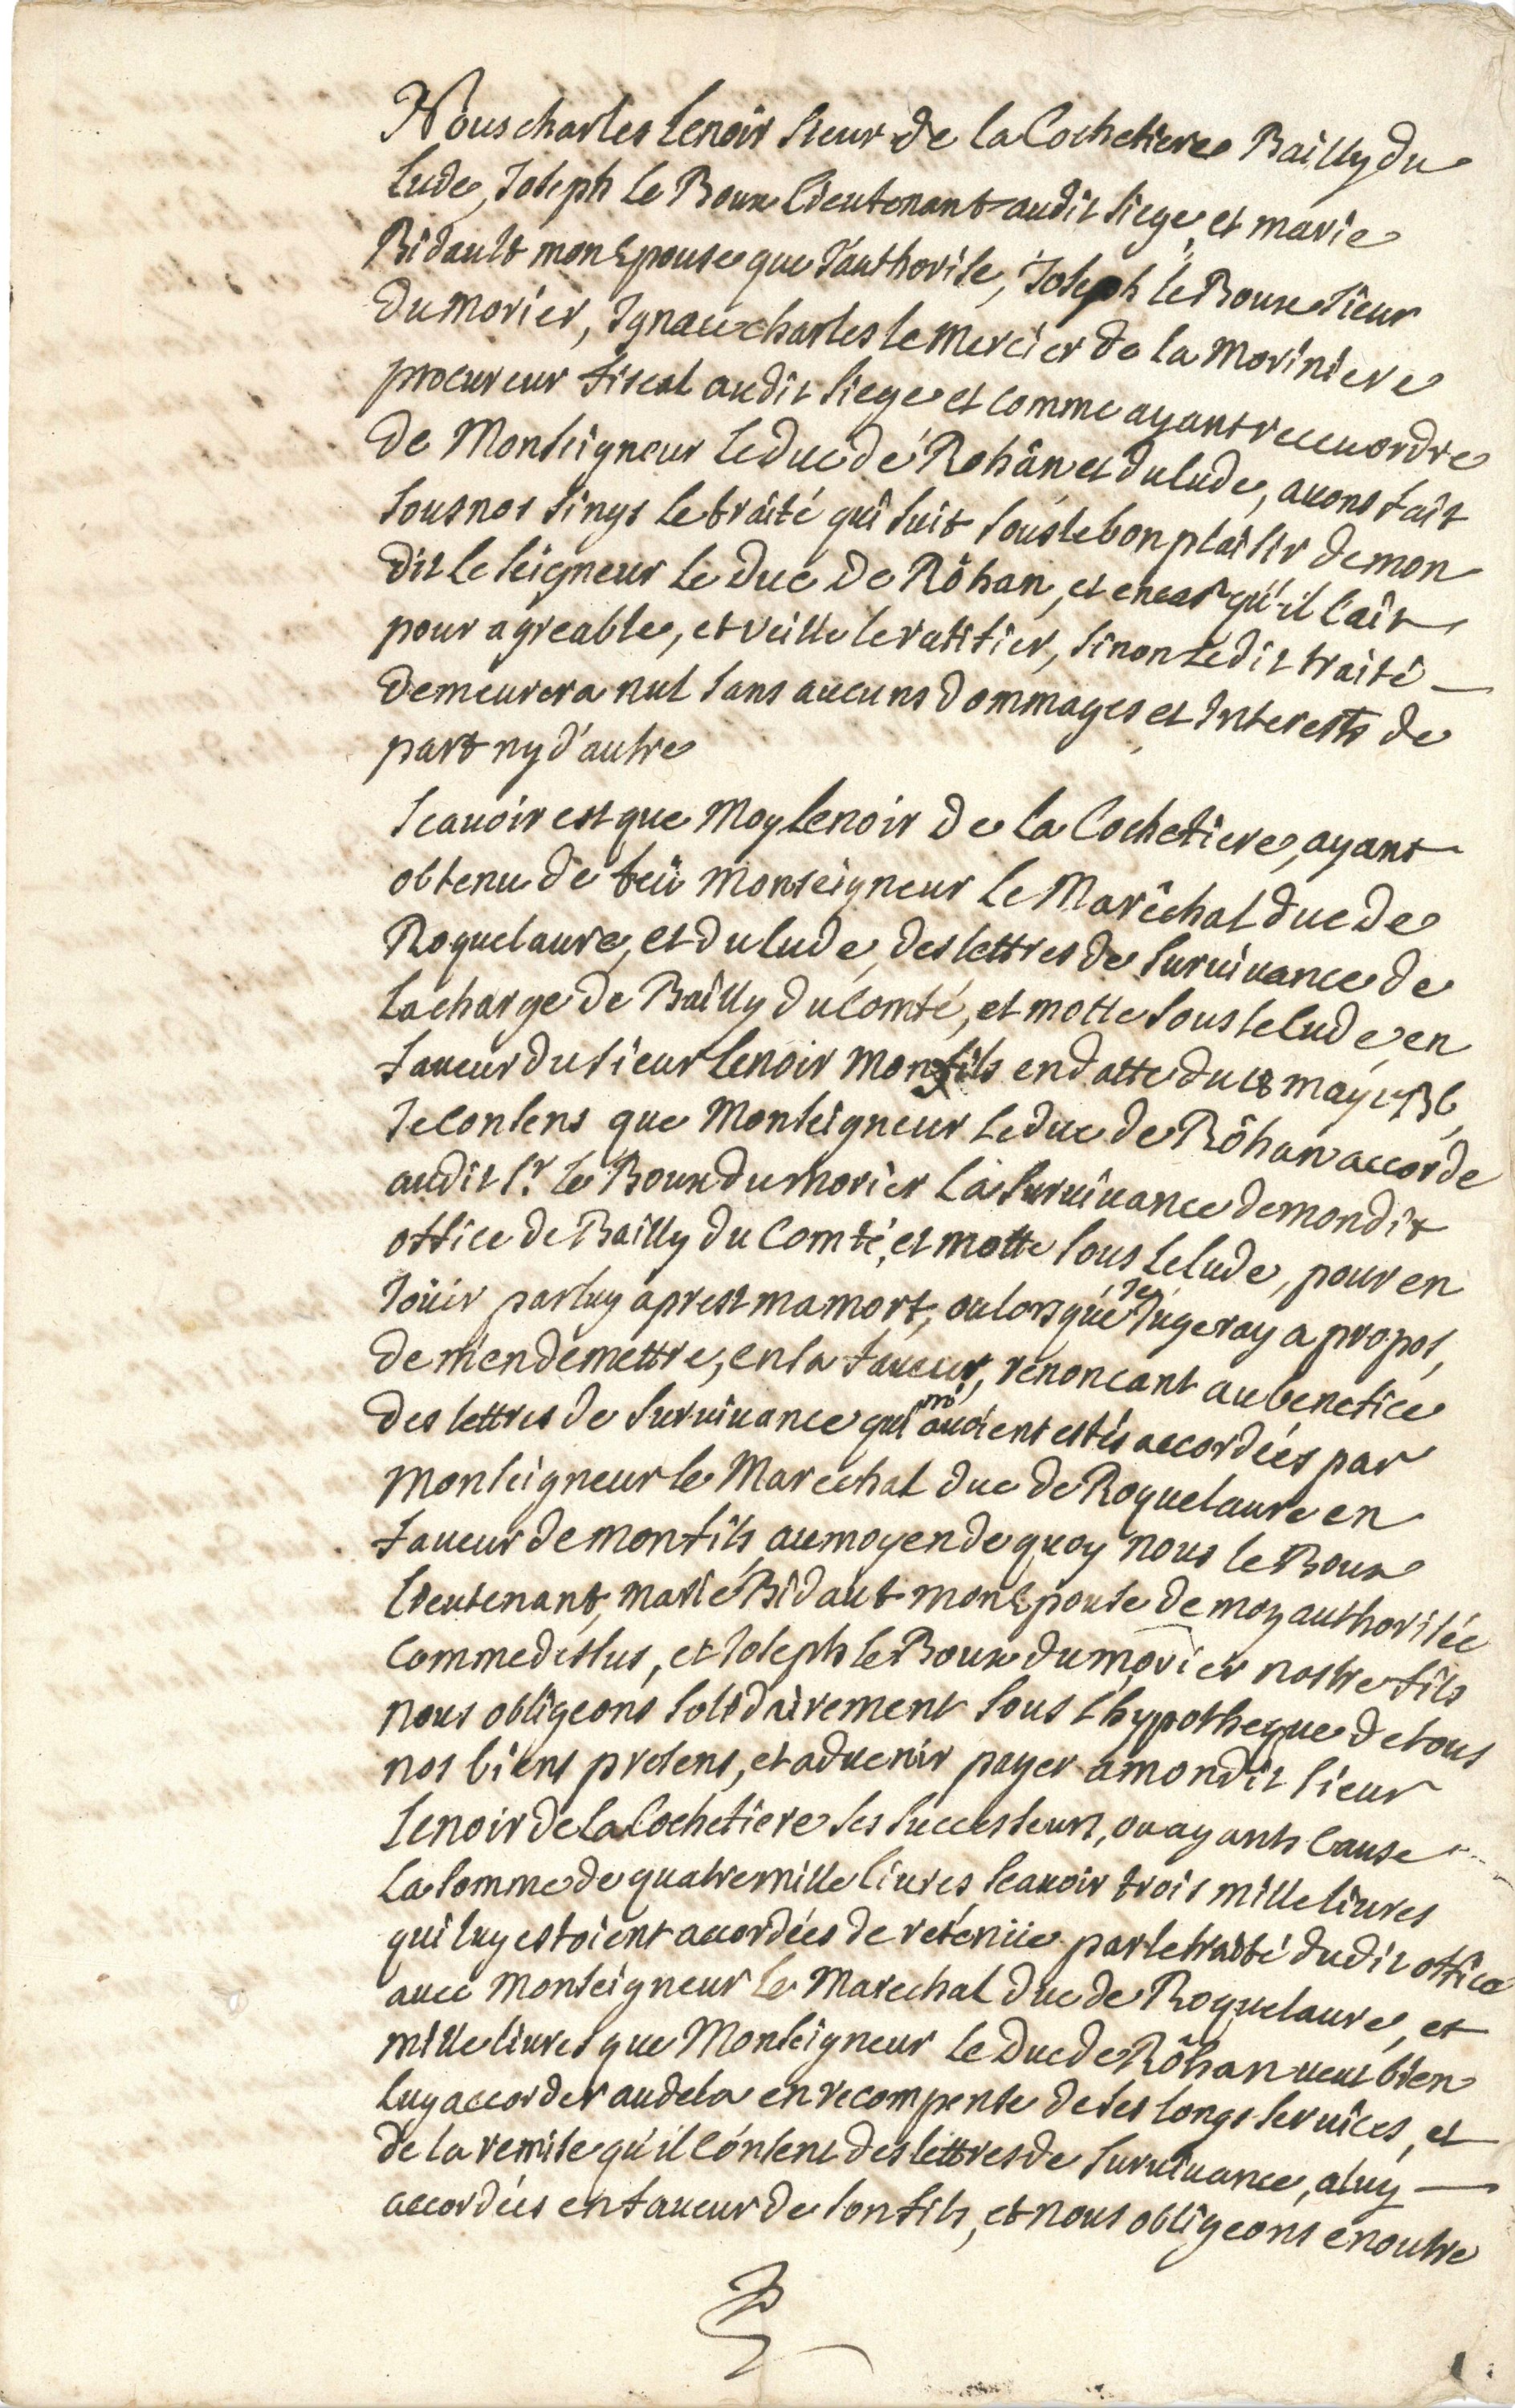 Nous charles Lenoir sieur de la Cochetiere Bailly du
Lude, Joseph Le Boux Lieutenant audit siege, et marie
Bidault mon Epouse que J'authorise, Joseph Le Boux sieur
du morier, Ignace charles le mercier de la moriniere
procureur fiscal audit siege et comme ayant receu ordre
de Monseigneur Le duc de Rohân et du lude, avons fait
sous nos sings le traité qui suit sous le bon plaisir de mon
dit le seigneur Le Duc de Rôhan, et en cas qu'il l'ait
pour agreable, et veille le ratifier, sinon Ledit traité
demeurera nul sans aucuns dommages et Interests de
part ny d'autre
Scavoir est que Moy Lenoir de la Cochetiere, ayant
obtenu de feü Monseigneur Le Maréchal duc de
Roquelaure, et du Lude, des lettres de survivance de
La charge de Bailly du Comté, et motte sous le Lude en
faveur du sieur Lenoir mon fils en datte du 18 may 1736
Je consens que Monseigneur Le duc de Rôhan accorde
audit Sr. Le Boux du morier La survivance de mondit
office de Bailly du Comté, et motte sous Le lude, pour en
Joüir par luy aprest ma mort, ou lorsque Je Jugeray a propos,
de m'en demettre, en sa faveur, renoncant au benefice
des lettres de survivance qui m'avoient estés accordées par
Monseigneur le Marechal duc de Roquelaure en
faveur de mon fils, au moyen de quoy nous le Boux
Lieutenant, marie Bidault mon Epouse de moy authorisée
Comme dessus, et Joseph Le Boux du morier nostre fils
nous obligeons solidairement sous L'hypotheque de tous
nos biens presens, et advenir payer a mondit sieur
Lenoir de La Cochetiere ses successeurs, ou ayants Cause
La somme de quatre mille livres, scavoir trois mille livres
qui luy estoient accordées de retenüe par le traité dudit office
avec Monseigneur Le Marechal Duc de Roquelaure, et
mille livres que Monseigneur Le Duc de Rôhan veut bien
Luy accorder au dela en recompense de ses longs services, et
de la remise qu'il Consent des lettres de survivance, a luy
accordées en faveur de son fils, et nous obligeons en outre